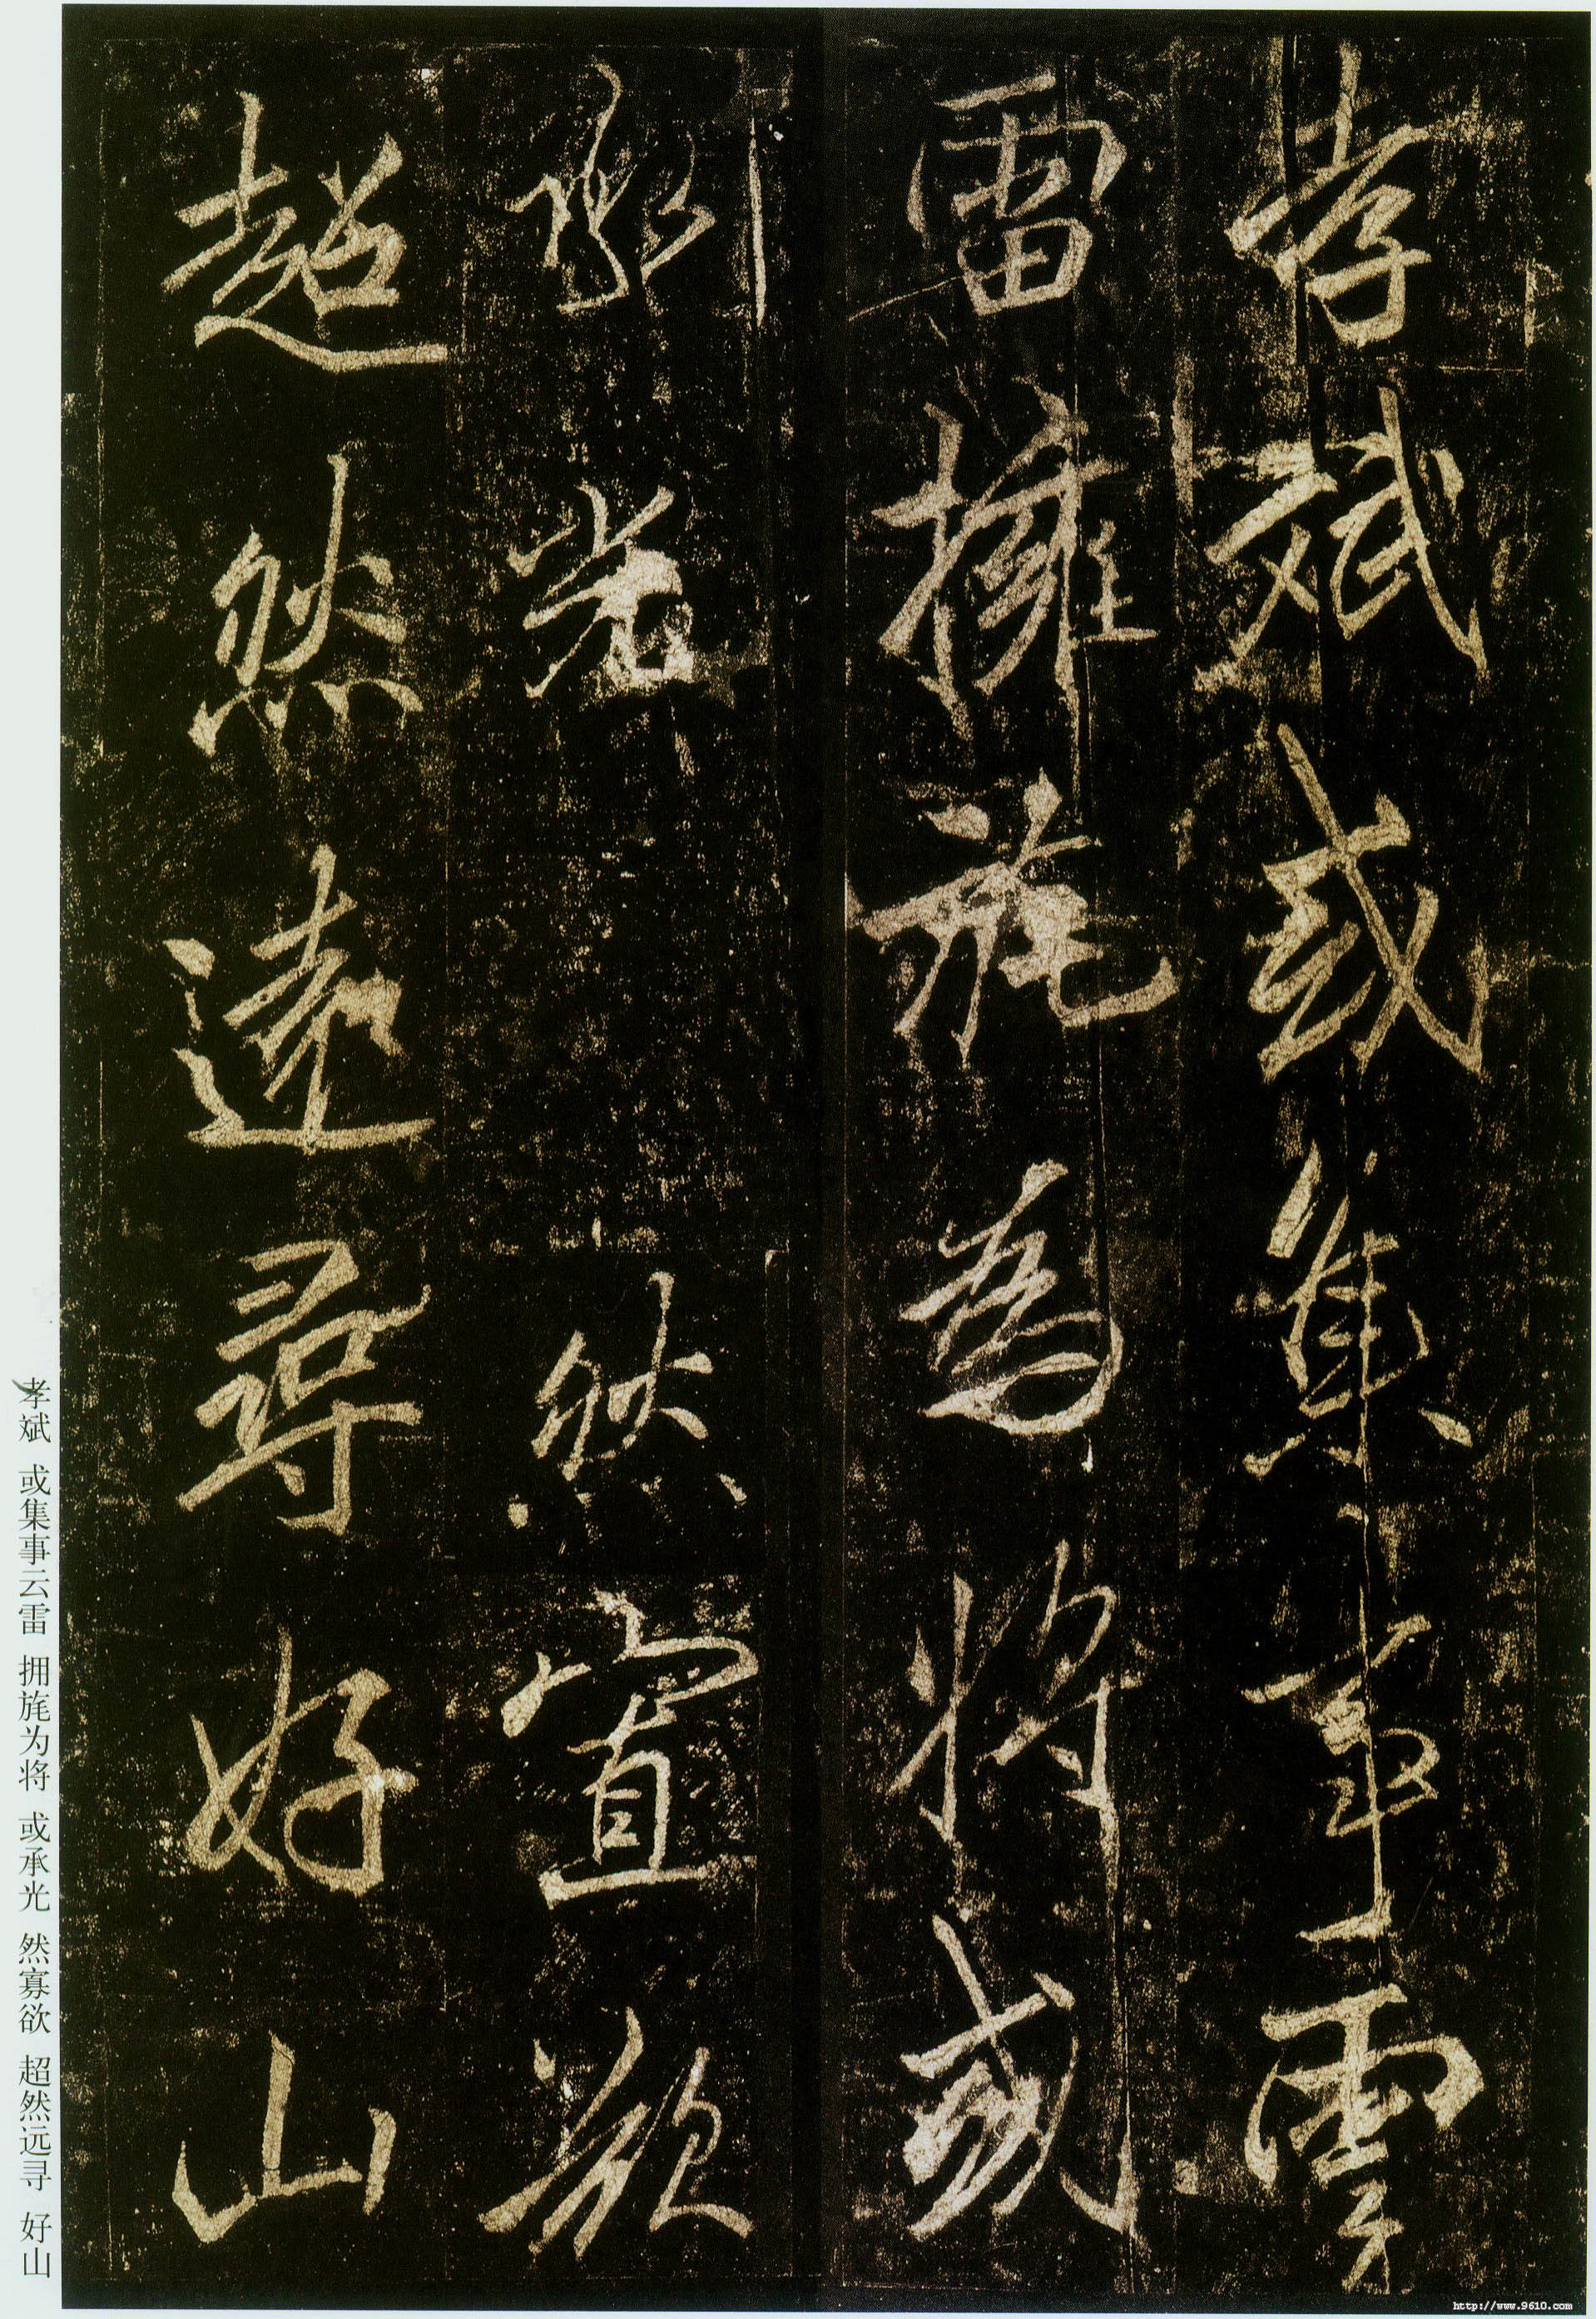 孝斌或集事雲
雷擁旄為將或
承光 然寡欲
超然遠尋好山
孝斌 或集事云雷 拥旄为将 或承光 然寡欲 超然远寻 好山
http://www.9610.com